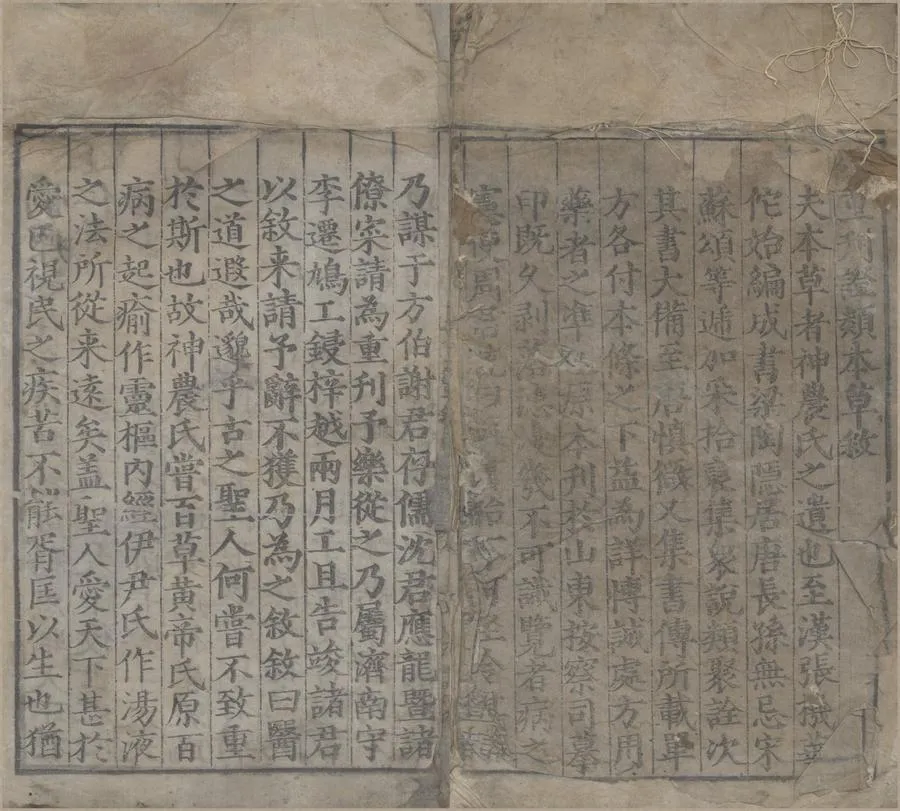 重刊證類本草敘
夫本草者神農氏之遺也至漢張機華
佗始編成書梁陶隱居唐長孫無忌宋
蘇頌等遞加采拾裒集衆說類聚詮次
其書大備至唐慎微又集書傳所載單
方各付本條之下益為詳博誠處方用
藥者之準也原本刊於山東按察司摹
印既久剥落幾不可識覽者病之
憲使周
乃謀于方伯謝君存儒沈君應龍曁諸
僚寀請為重刋予樂從之乃屬濟南守
李遷鳩工鋟梓越兩月工且告竣諸君
以敘来請予辭不獲乃為之敘敘曰醫
之道遐哉邈乎古之聖人何嘗不致重
於斯也故神農氏嘗百草黄帝氏原百
病之起瘉作靈樞內經伊尹氏作湯液
之法所從来遠矣盖聖人愛天下甚於
愛視民之疾苦不能胥匡以生也猶